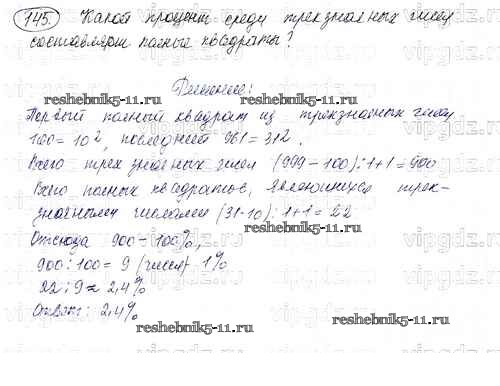 145. Какой процент среди трехзначных чисел
составляют полные квадраты?
Решение:
reshebnik5-11.ru
reshebnik5-11.ru
Первый полный квадрат из трехзначных чисел
100 = 10², последнее 961 = 31².
Всего трехзначных чисел (999 - 100) : 1 + 1 = 900
Всего полных квадратов, являющихся трех-
значными числами (31-10) : 1 + 1 = 22
reshebnik5-11.ru
Отсюда 900 - 100%,
900 : 100 = 9 (чисел) 1%
22 : 9 ≈ 2,4%
Ответ: 2,4%
reshebnik5-11.ru
vipgdz.ru